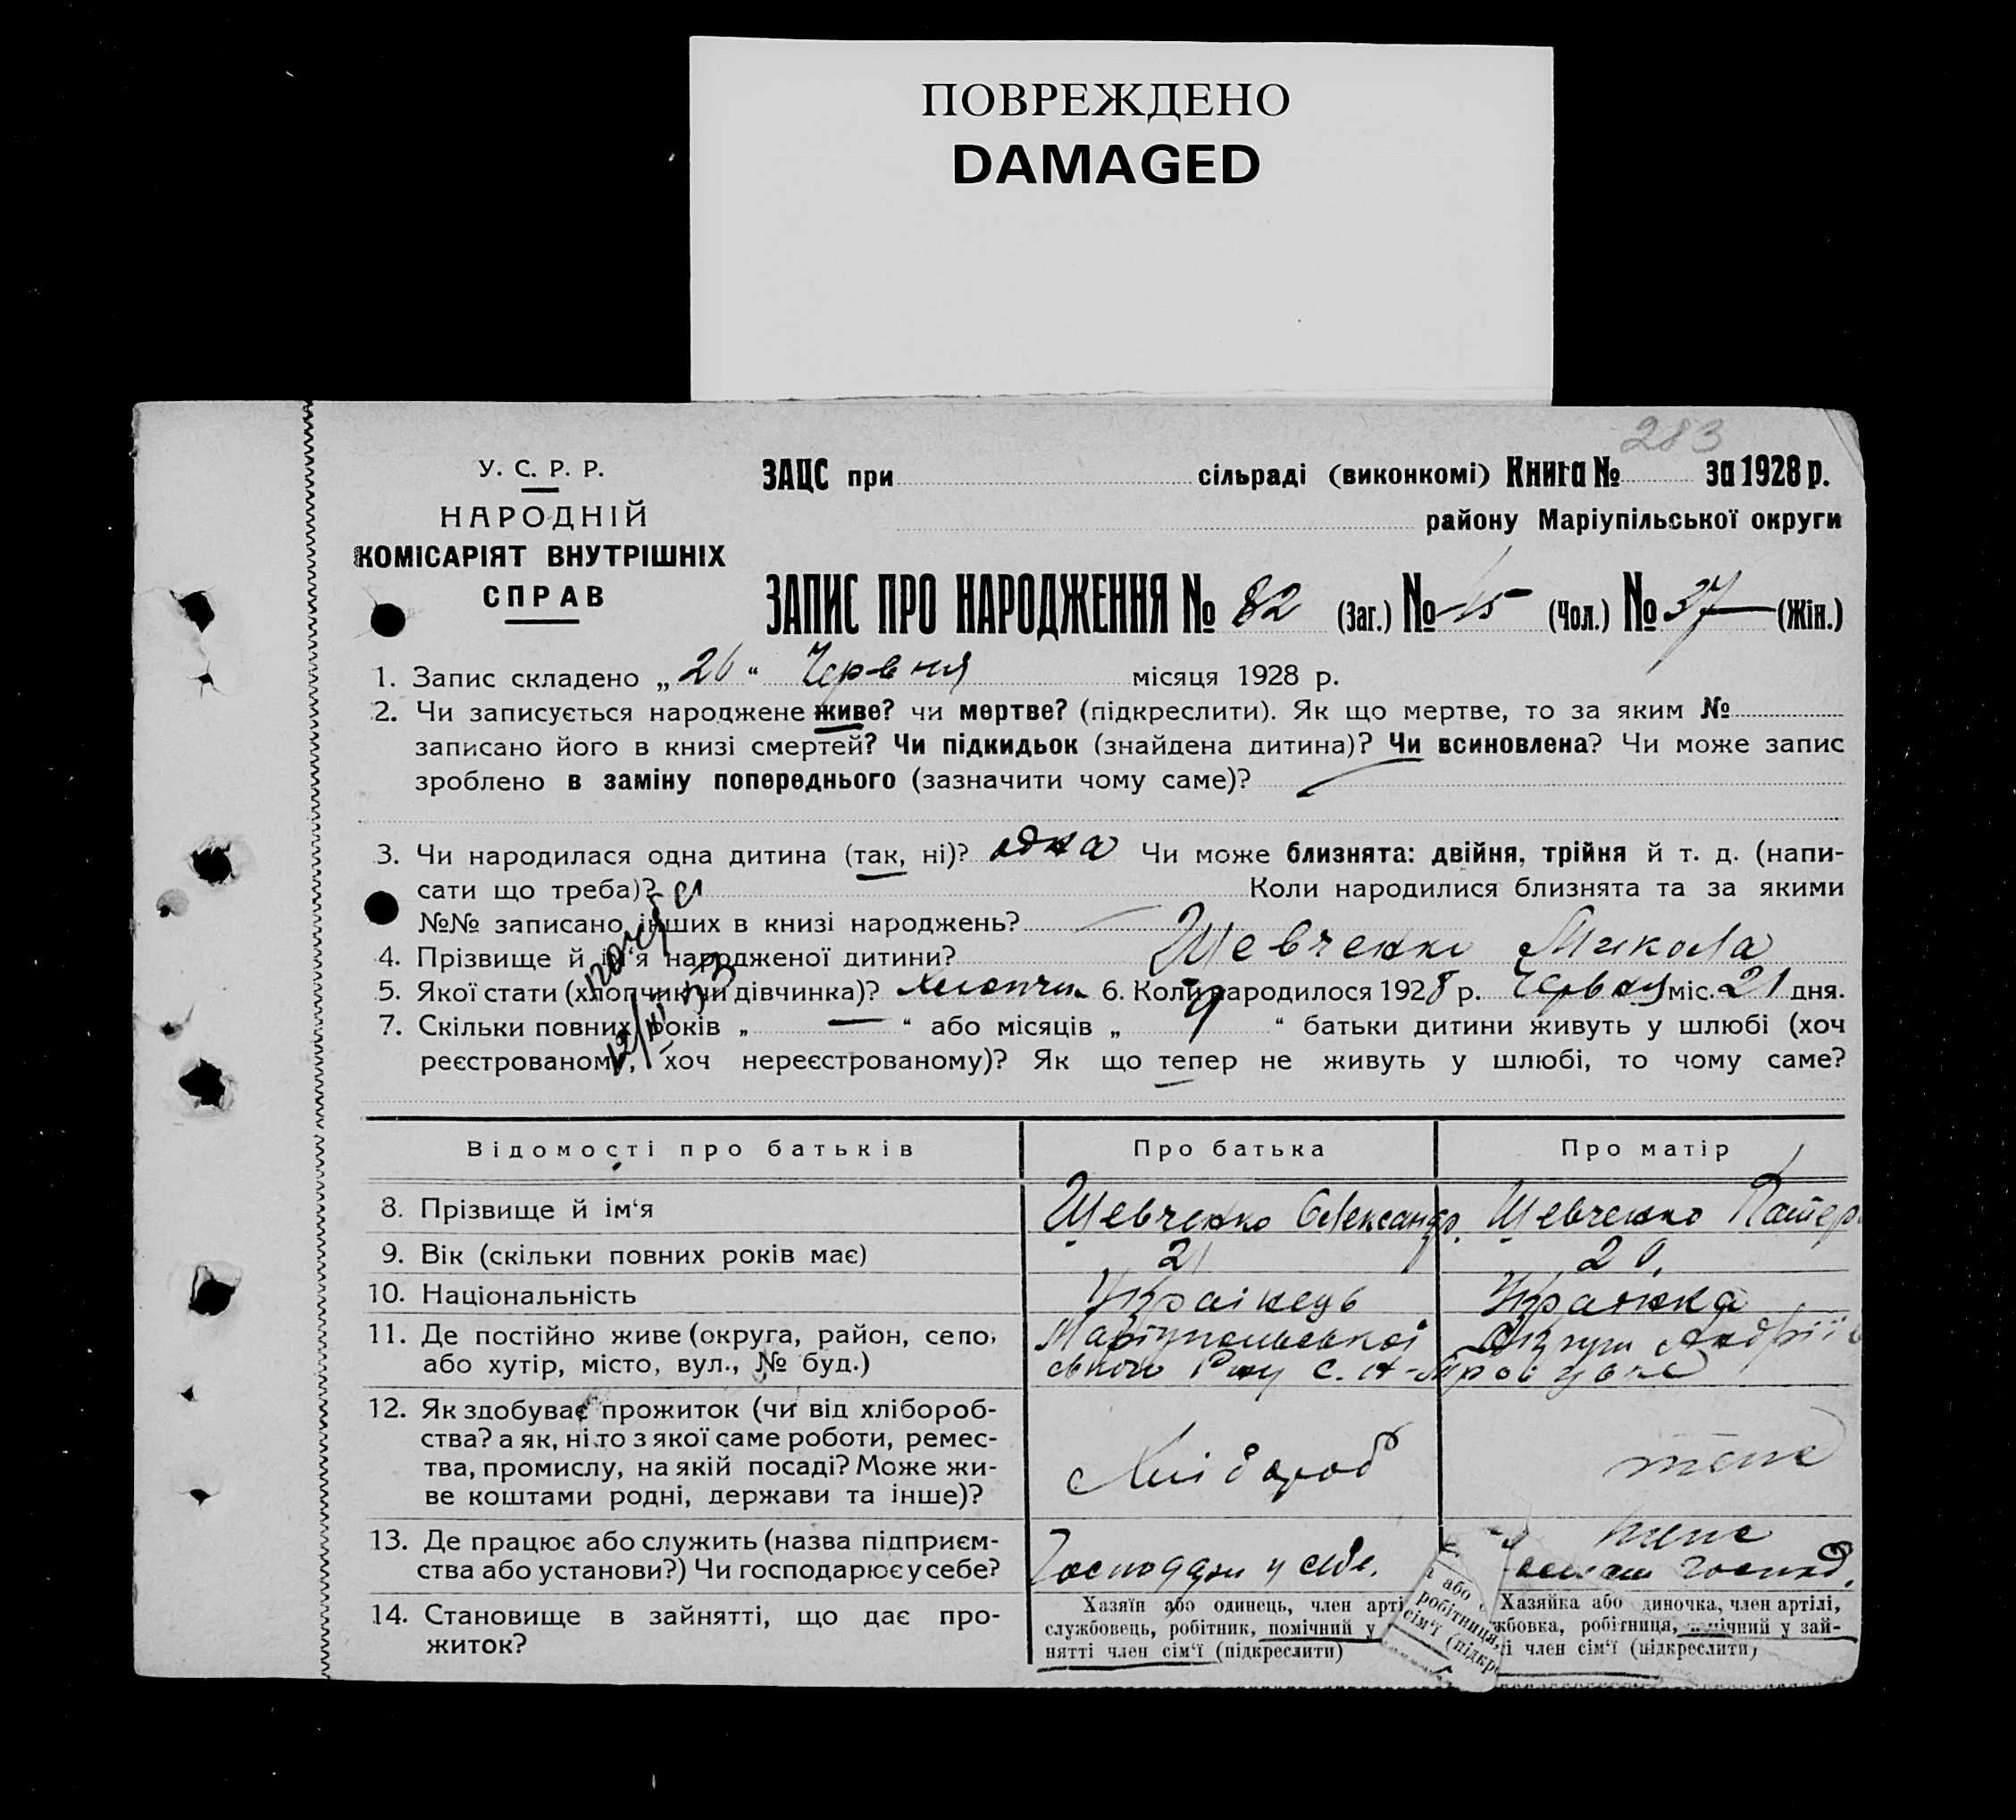 ПОВРЕЖДЕНО
DAMAGED
283
У. С. Р. Р.
НАРОДНІЙ
КОМІСАРІЯТ ВНУТРІШНІХ
СПРАВ
ЗАЦС при сільраді (виконкомі) Книга № за 1928 р.
району Маріупільської округи
ЗАПИС ПРО НАРОДЖЕННЯ № 82 (Заг.) № 45 (Чол.) № 37 (Жін.)
1. Запис складено „ 26 “ Червня місяця 1928 р.
2. Чи записується народжене живе? чи мертве? (підкреслити). Як що мертве, то за яким №
записано його в книзі смертей? Чи підкидьок (знайдена дитина)? Чи всиновлена? Чи може запис
зроблено в заміну попереднього (зазначити чому саме)?
3. Чи народилася одна дитина (так, ні)? одна Чи може близнята: двійня, трійня й т. д. (напи-
сати що треба)? Коли народилися близнята та за якими
№№ записано інших в книзі народжень?
4. Прізвище й ім‘я народженої дитини? Шевченко Микола
5. Якої стати (хлопчик чи дівчинка)? Хлопчик 6. Коли народилося 1928 р. Червня міс. 21 дня.
7. Скільки повних років „ — “ або місяців „ 9 “ батьки дитини живуть у шлюбі (хоч
реєстрованому, хоч нереєстрованому)? Як що тепер не живуть у шлюбі, то чому саме?
Відомості про батьків Про батька Про матір
8. Прізвище й ім‘я Шевченко Олександр. Шевченко Катер
9. Вік (скільки повних років має) 21 20.
10. Національність Українець Українка
11. Де постійно живе (округа, район, село, Маріупольської Округи Андріїв
або хутір, місто, вул., № буд.) ського Р-ну с.
12. Як здобуває прожиток (чи від хлібороб-
ства? а як, ні то з якої саме роботи, ремес-
тва, промислу, на якій посаді? Може жи- Хлібороб теж
ве коштами родні, держави та інше)?
13. Де працює або служить (назва підприєм- теж
ства або установи?) Чи господарює у себе? у себе. господ.
14. Становище в зайнятті, що дає про-
житок?
Хазяїн або одинець, член арті
службовець, робітник, помічний у
нятті член сім‘ї (підкреслити)
і або
робітниця,
сім‘ї (підкр
Хазяйка або диночка, член артілі,
жбовка, робітниця, помічний у зай-
і член сім‘ї (підкреслити)